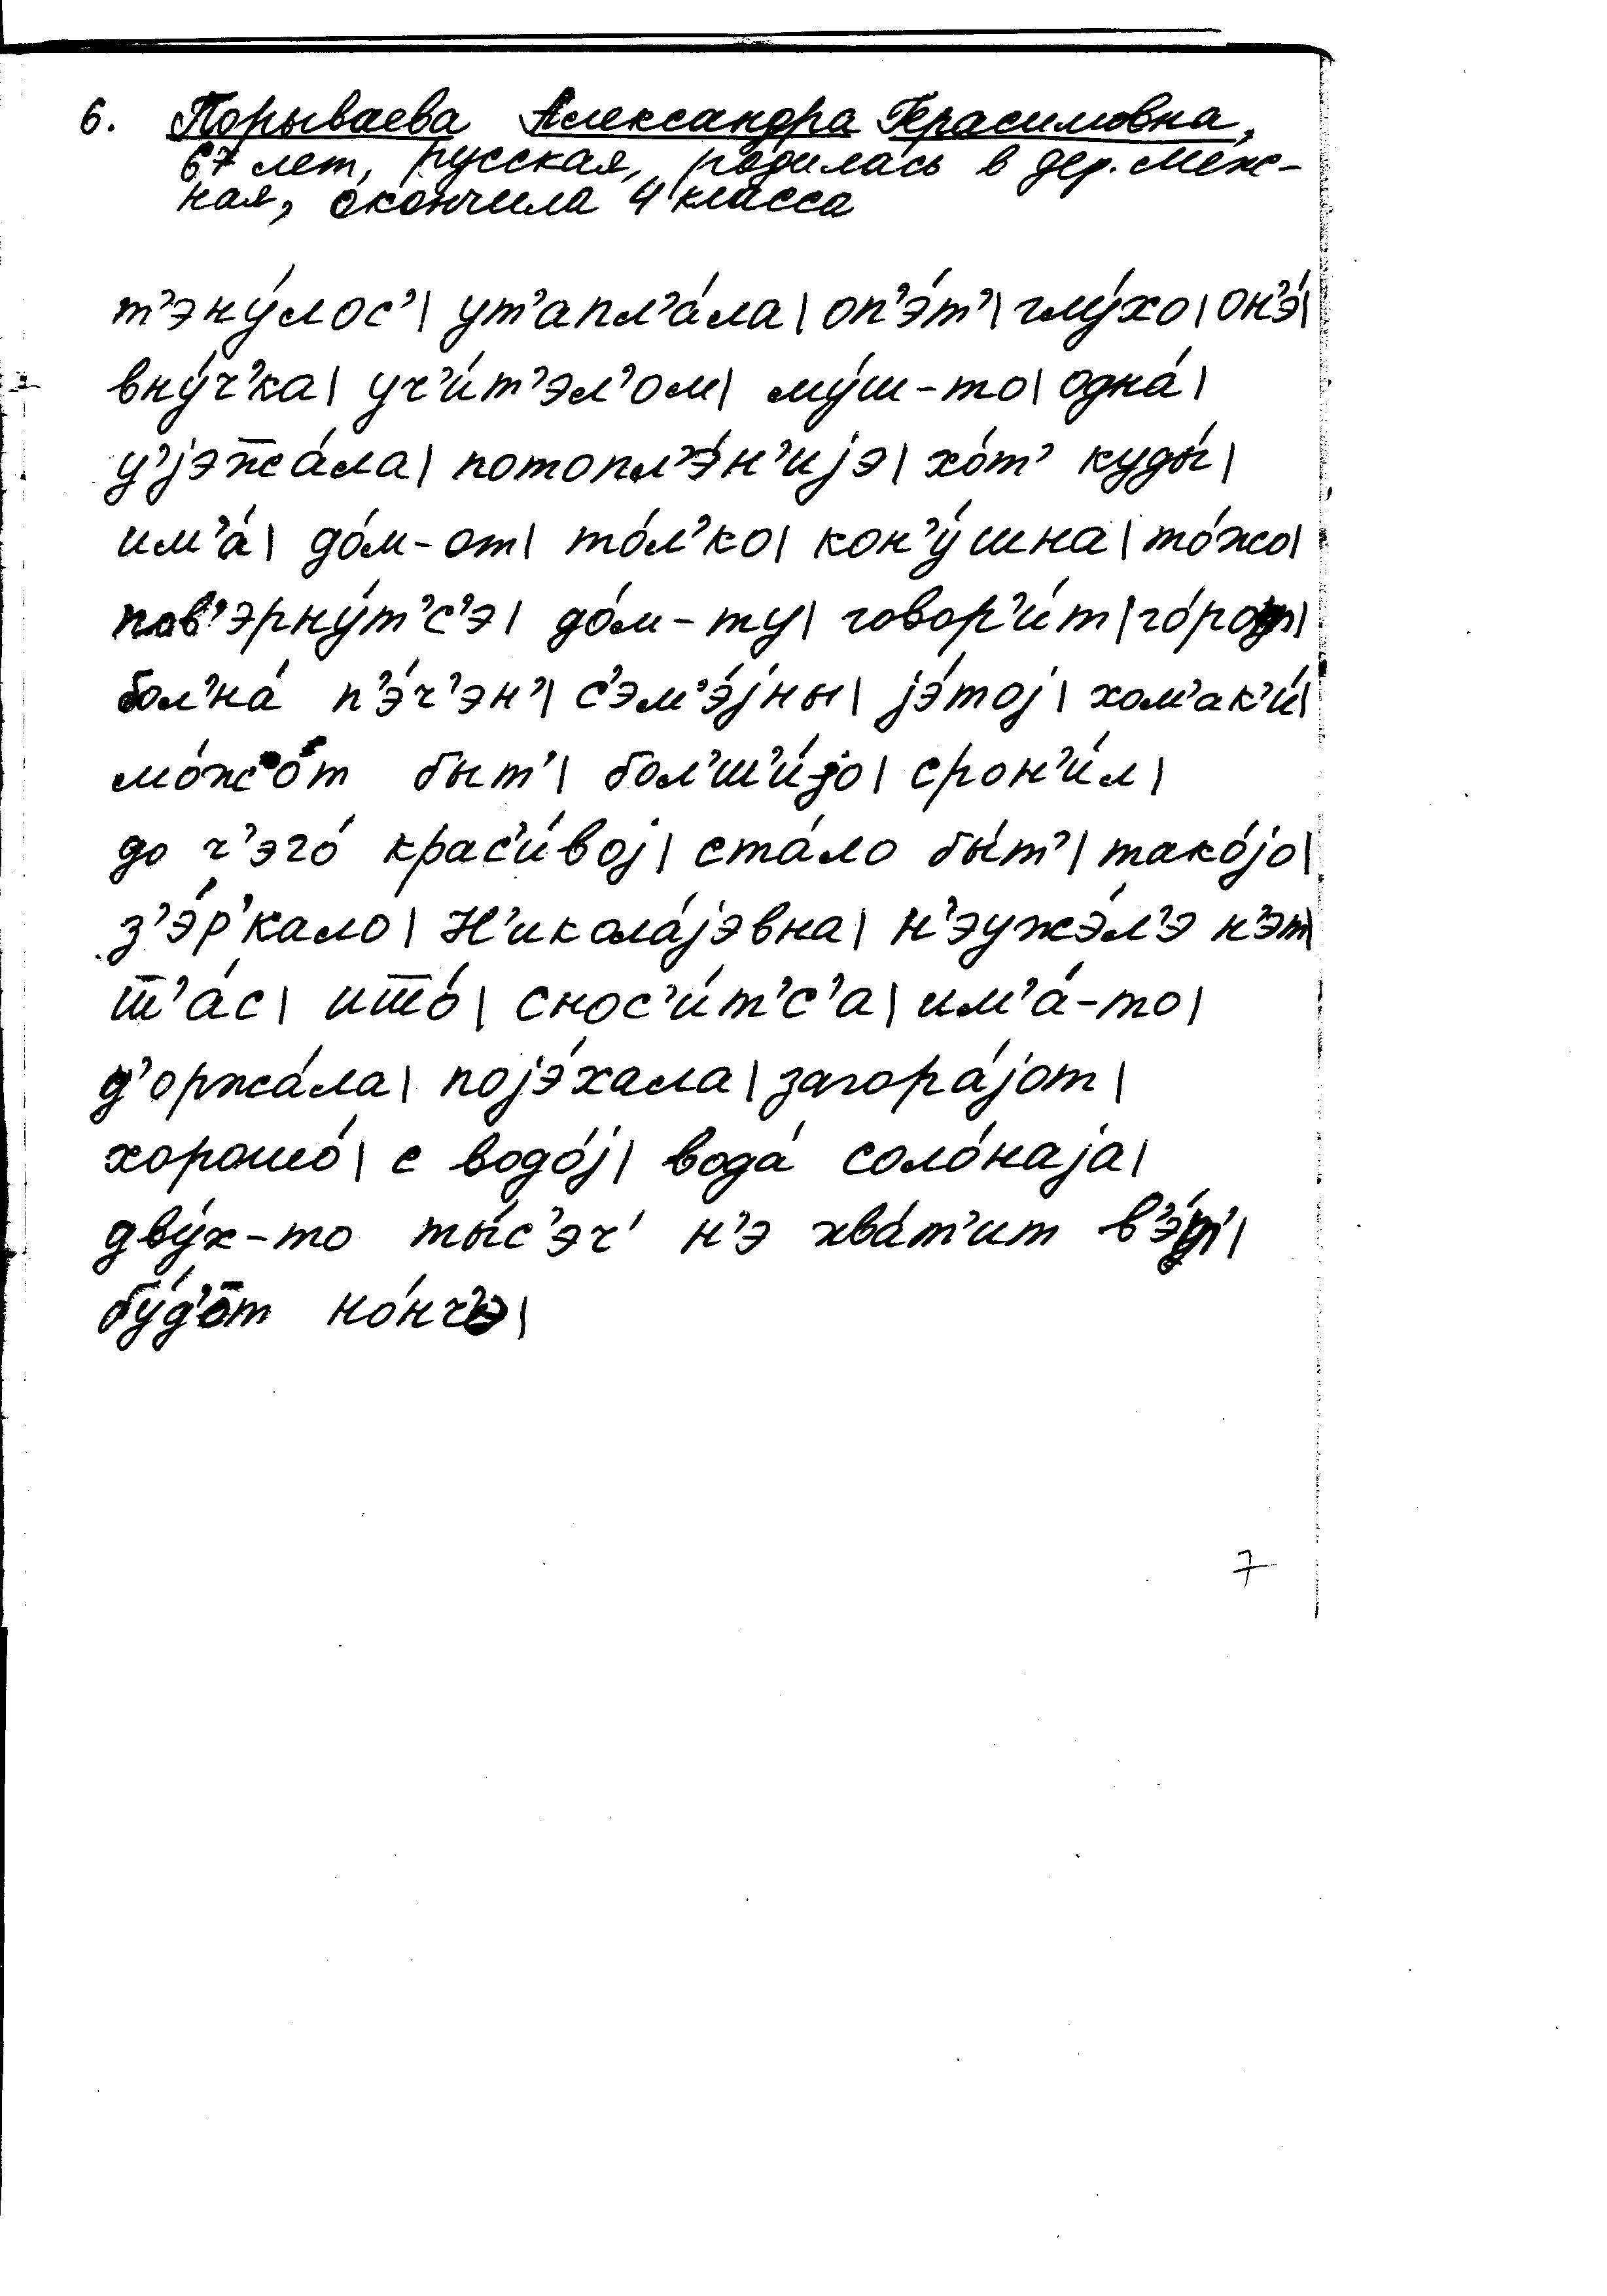 6. Порываева Александра Герасимовна,
67 лет, русская, родилась в дер. Меж-
ная, окончила 4 класса
т’эну́лос’| ут’апл’а́ла| оп’э́т’| глу́хо| он’э́|
вну́ч’ка| уч’и́т’эл’ом| му́ш-то| одна́|
у’јэж̅а́ла| потопл’э́н’ијэ| хо́т’ куды́|
им’а́| до́м-от| то́л’ко| кон’у́шна| то́жо|
пов’эрну́т’с’э| до́м-ту| говор’и́т| го́рот|
бол’на́ п’э́ч’эн’| с’эм’э́јны| јэ́тој| хом’ак’и́|
мо́жот быт’| бол’ш’и́јо| срон’и́л|
до ч’эго́ крас’и́вој| ста́ло бы́т’| тако́јо|
з’э́р’кало| Н’икола́јэвна| н’эужэ́л’э н’эт|
ш̅’а́с| иш̅о́| снос’и́т’с’а| им’а́-то|
д’оржа́ла| појэ́хала| загора́јот|
хорошо́| с водо́ј| вода́ соло́наја|
дву́х-то ты́с’эч’ н’э хва́т’ит в’э́т’|
бу́д’от но́нч’э|
7